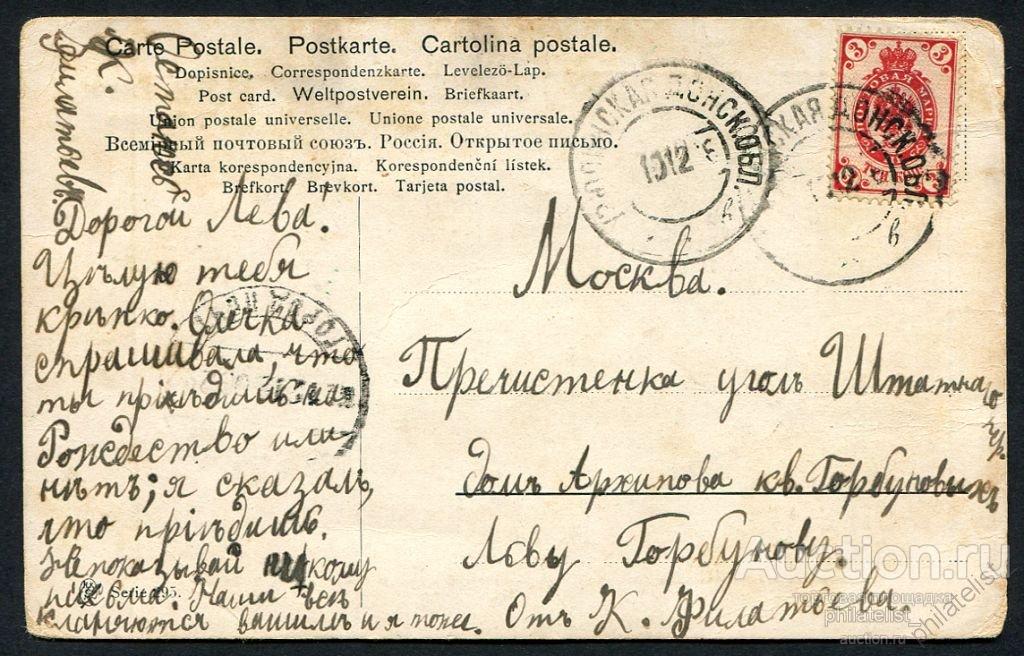 Carte Postale. Postkarte. Cartolina postale.
Dopisnice. Correspondenzkarte. Levelező-Lap.
Post card. Weltpostverein. Briefkaart.
Union postale universelle. Unione postale universale.
Всемірный почтовый союзъ. Россія. Открытое письмо.
Karta korespondencyjna. Korespondenční lístek.
Brefkort. Brevkort. Tarjeta postal.
3 3
1912
ДОНСК.ОБЛ.
СКАЯ ДОНСК.ОБЛ.
Дорогой Лева!
Цѣлую тебя
крѣпко. Олечка
спрашивала, что
ты пріѣдишь на
Рождество или
нѣтъ; я сказалъ,
что пріѣдишь.
Не показывай никому
письма. Наши всѣ
кланяются вашимъ и я тоже.
К. Филатьевъ.
Serie 195.
Москва.
Пречистенка уголъ Штатнаго пер.
домъ Архипова кв. Горбуновыхъ
Лёву Горбунову.
Отъ К. Филатьева.
Auction.ru
торговая площадка
philatelist_
auction.ru
philatelist